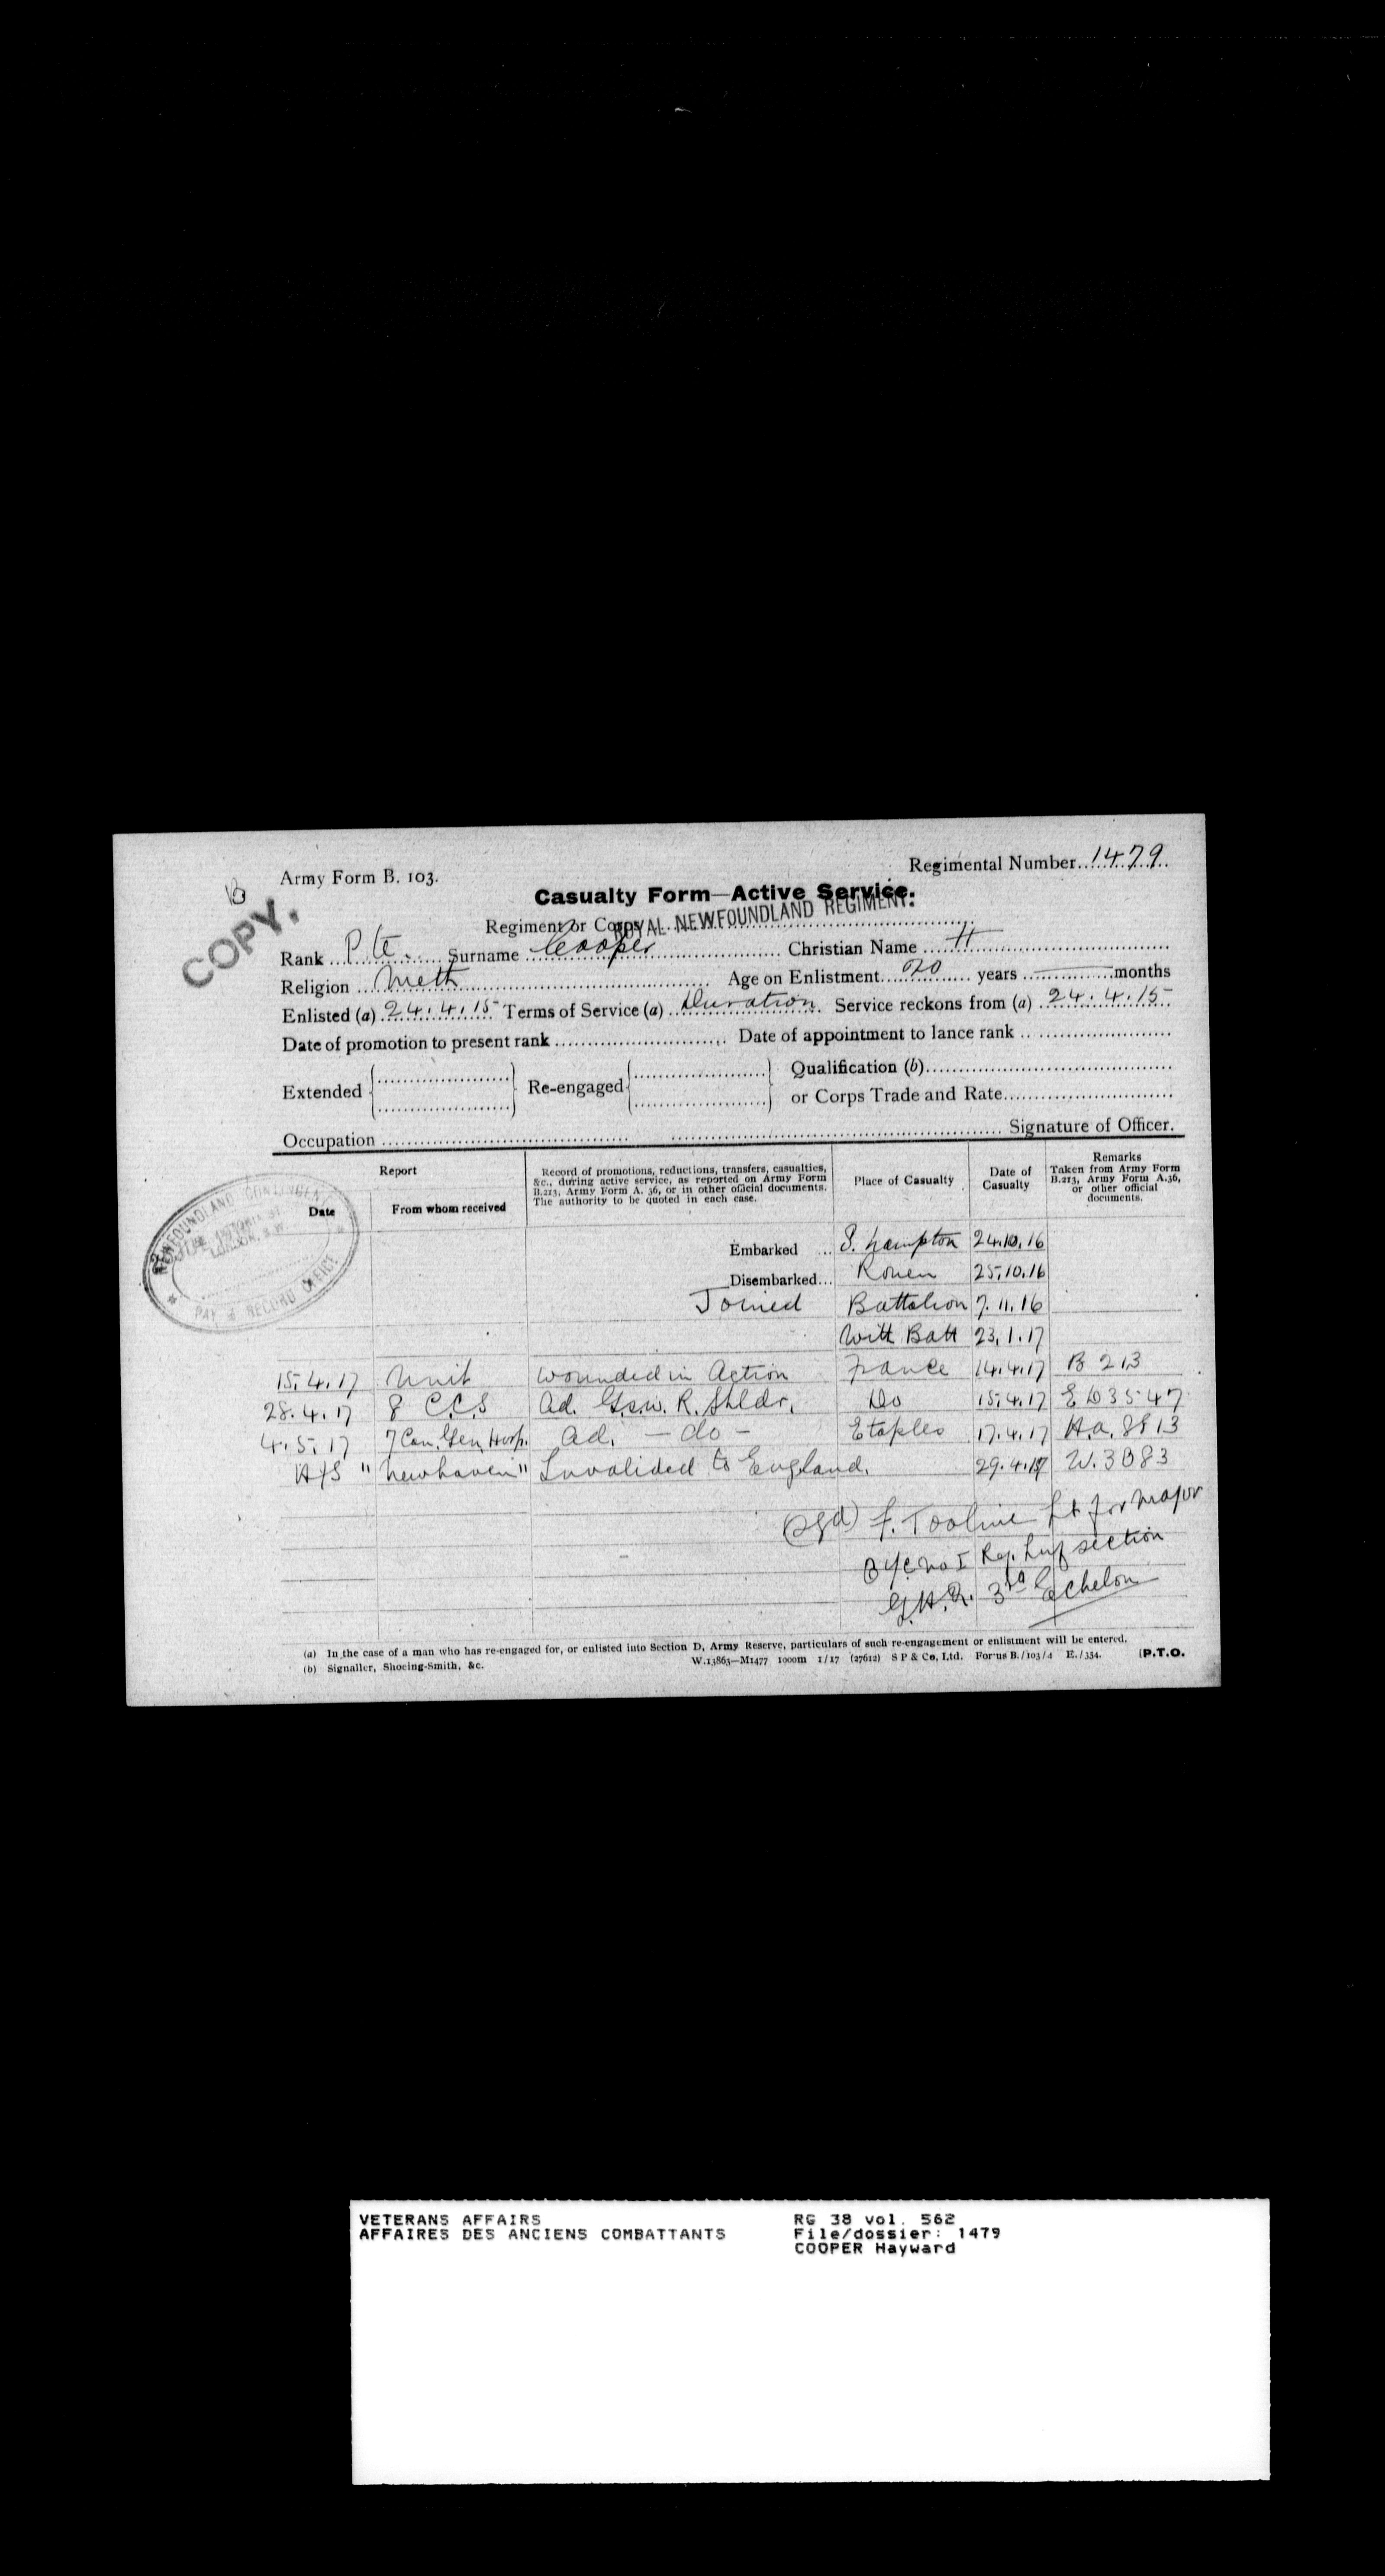 Army Form B. 103.
Regimental Number 1479
COPY.
Casualty Form—Active Service.
Regiment or Corps ROYAL NEWFOUNDLAND REGIMENT.
Rank Pte. Surname Cooper Christian Name H
Religion Meth Age on Enlistment 20 years — months
Enlisted (a) 24.4.15 Terms of Service (a) Duration Service reckons from (a) 24.4.15
Date of promotion to present rank Date of appointment to lance rank
Extended Re-engaged Qualification (b)
or Corps Trade and Rate
Occupation Signature of Officer.
Report
Date From whom received
Record of promotions, reductions, transfers, casualties,
&c., during active service, as reported on Army Form
B.213, Army Form A. 36, or in other official documents.
The authority to be quoted in each case.
Place of Casualty
Date of
Casualty
Remarks
Taken from Army Form
B.213, Army Form A.36,
or other official
documents.
NEWFOUNDLAND CONTINGENT
VICTORIA ST
LONDON, S.W.
PAY & RECORD OFFICE
Embarked ... S. hampton 24.10.16
Disembarked... Rouen 25.10.16
Joined Battalion 7.11.16
With Batt 23.1.17
15.4.17 Unit wounded in Action France 14.4.17 B 213
28.4.17 8 C.C.S Ad. G.s.w. R. Shldr. Do 15.4.17 E D3547
4.5.17 7 Can. Gen. Hosp. Ad. — do — Etaples 17.4.17 H.a. 8813
H/S "Newhaven" Invalided to England. 29.4.17 W.3083
(sgd) F. Lt for Major
O i/c No I Reg. Inf section
G.H.Q. 3rd Echelon
(a) In the case of a man who has re-engaged for, or enlisted into Section D, Army Reserve, particulars of such re-engagement or enlistment will be entered.
(b) Signaller, Shoeing-Smith, &c. W.13863—M1477 1000m 1/17 (27612) S P & Co, Ltd. Forms B./103/4 E./354. (P.T.O.
VETERANS AFFAIRS RG 38 vol. 562
AFFAIRES DES ANCIENS COMBATTANTS File/dossier: 1479
COOPER Hayward